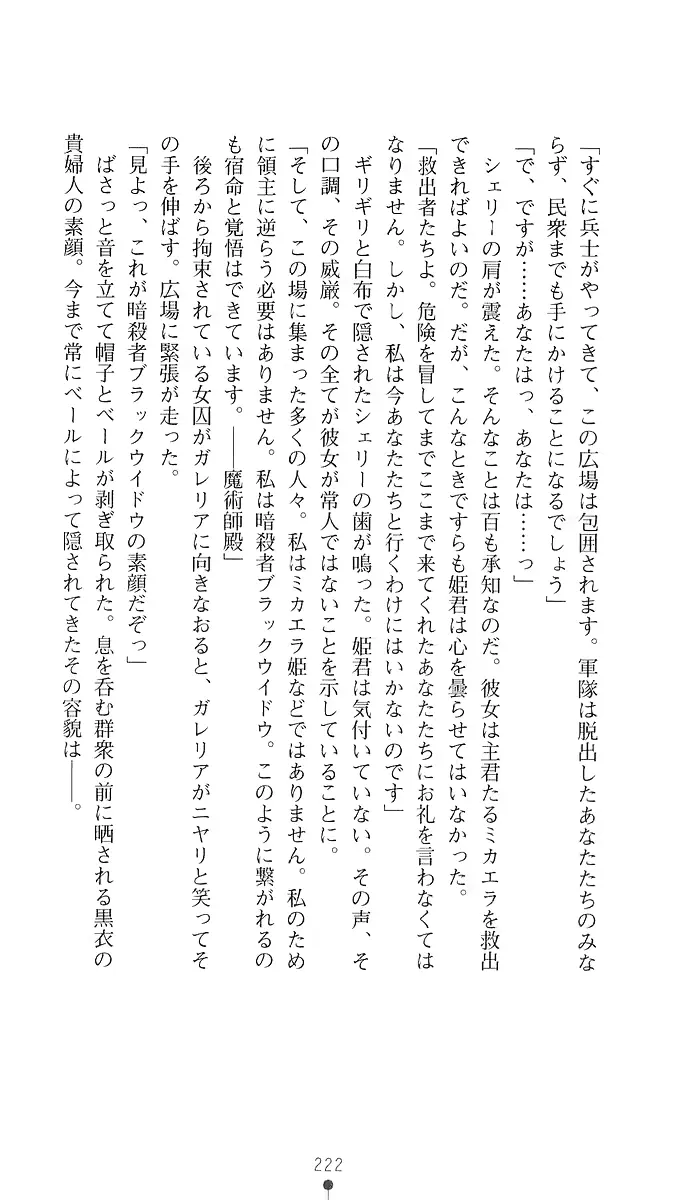 「すぐに兵士がやってきて、この広場は包囲されます。軍隊は脱出したあなたたちのみな
らず、民衆までも手にかけることになるでしょう」
「で、ですが……あなたはっ、あなたは……っ」
　シェリーの肩が震えた。そんなことは百も承知なのだ。彼女は主君たるミカエラを救出
できればよいのだ。だが、こんなときですらも姫君は心を曇らせてはいなかった。
「救出者たちよ。危険を冒してまでここまで来てくれたあなたたちにお礼を言わなくては
なりません。しかし、私は今あなたたちと行くわけにはいかないのです」
　ギリギリと白布で隠されたシェリーの歯が鳴った。姫君は気付いていない。その声、そ
の口調、その威厳。その全てが彼女が常人ではないことを示していることに。
「そして、この場に集まった多くの人々。私はミカエラ姫などではありません。私のため
に領主に逆らう必要はありません。私は暗殺者ブラックウイドウ。このように繋がれるの
も宿命と覚悟はできています。――魔術師殿」
　後ろから拘束されている女囚がガレリアに向きなおると、ガレリアがニヤリと笑ってそ
の手を伸ばす。広場に緊張が走った。
「見よっ、これが暗殺者ブラックウイドウの素顔だぞっ」
　ばさっと音を立てて帽子とベールが剥ぎ取られた。息を呑む群衆の前に晒される黒衣の
貴婦人の素顔。今まで常にベールによって隠されてきたその容貌は――。
222